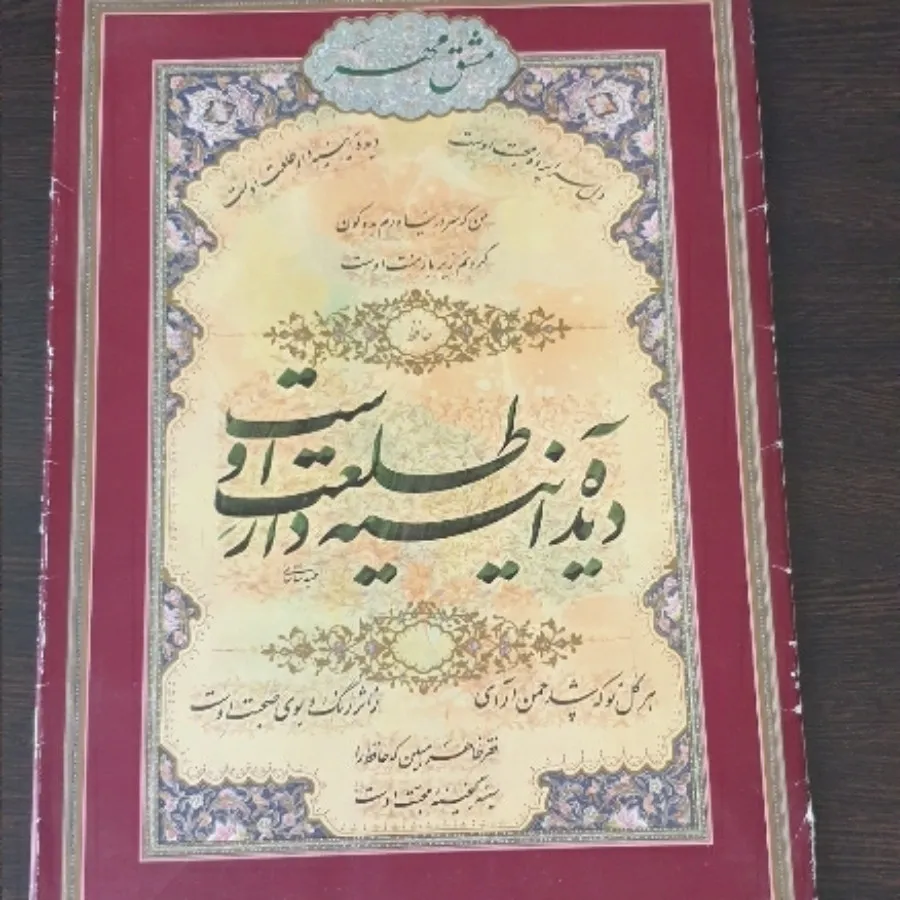 مشق مهر
دل سراپرده محبت اوست
دیده آیینه دار طلعت اوست
من که سر در نیاورم به دو کون
گردنم زیر بار منت اوست
حافظ
دیده آیینه دار طلعت اوست
هر گل نو که شد چمن آرای
ز اثر رنگ و بوی صحبت اوست
فقر ظاهر مبین که حافظ را
سینه گنجینه محبت اوست